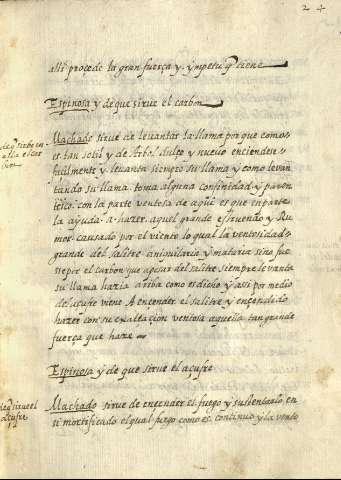 24
alli procede la gran fuerça y ympetu q̃ tiene
Espinosa y de que sirue el carbon
de q̃ sirbe en
ella el car
bon
Machado sirue de leuantar la llama por que como
es tan sotil y de Arbol dulçe y nueuo enciendese
façilmente y leuanta siempre su llama y como leuan
tando su llama toma alguna confinidad y paren
tesco con la parte ventosa de aqui es que en parte
la ayuda A hazer aquel grande estruendo y Ru
mor causado por el viento lo qual la ventosidad
grande del salitre aniquilaria y mataria sino fue
sse por el carbon que apesar del salitre siempre leuanta
su llama hazia arriba como es dicho y assi por medio
del açufre viene A encender el salitre y encendido
hazer con su exaltaçion ventosa aquella tan grande
fuerça que haze
Espinosa y de que sirue el açufre
de q̃ sirue el
açufre
Machado sirue de encender el fuego y sustentarlo en
si mortificado el qual fuego como es continuo y la vento